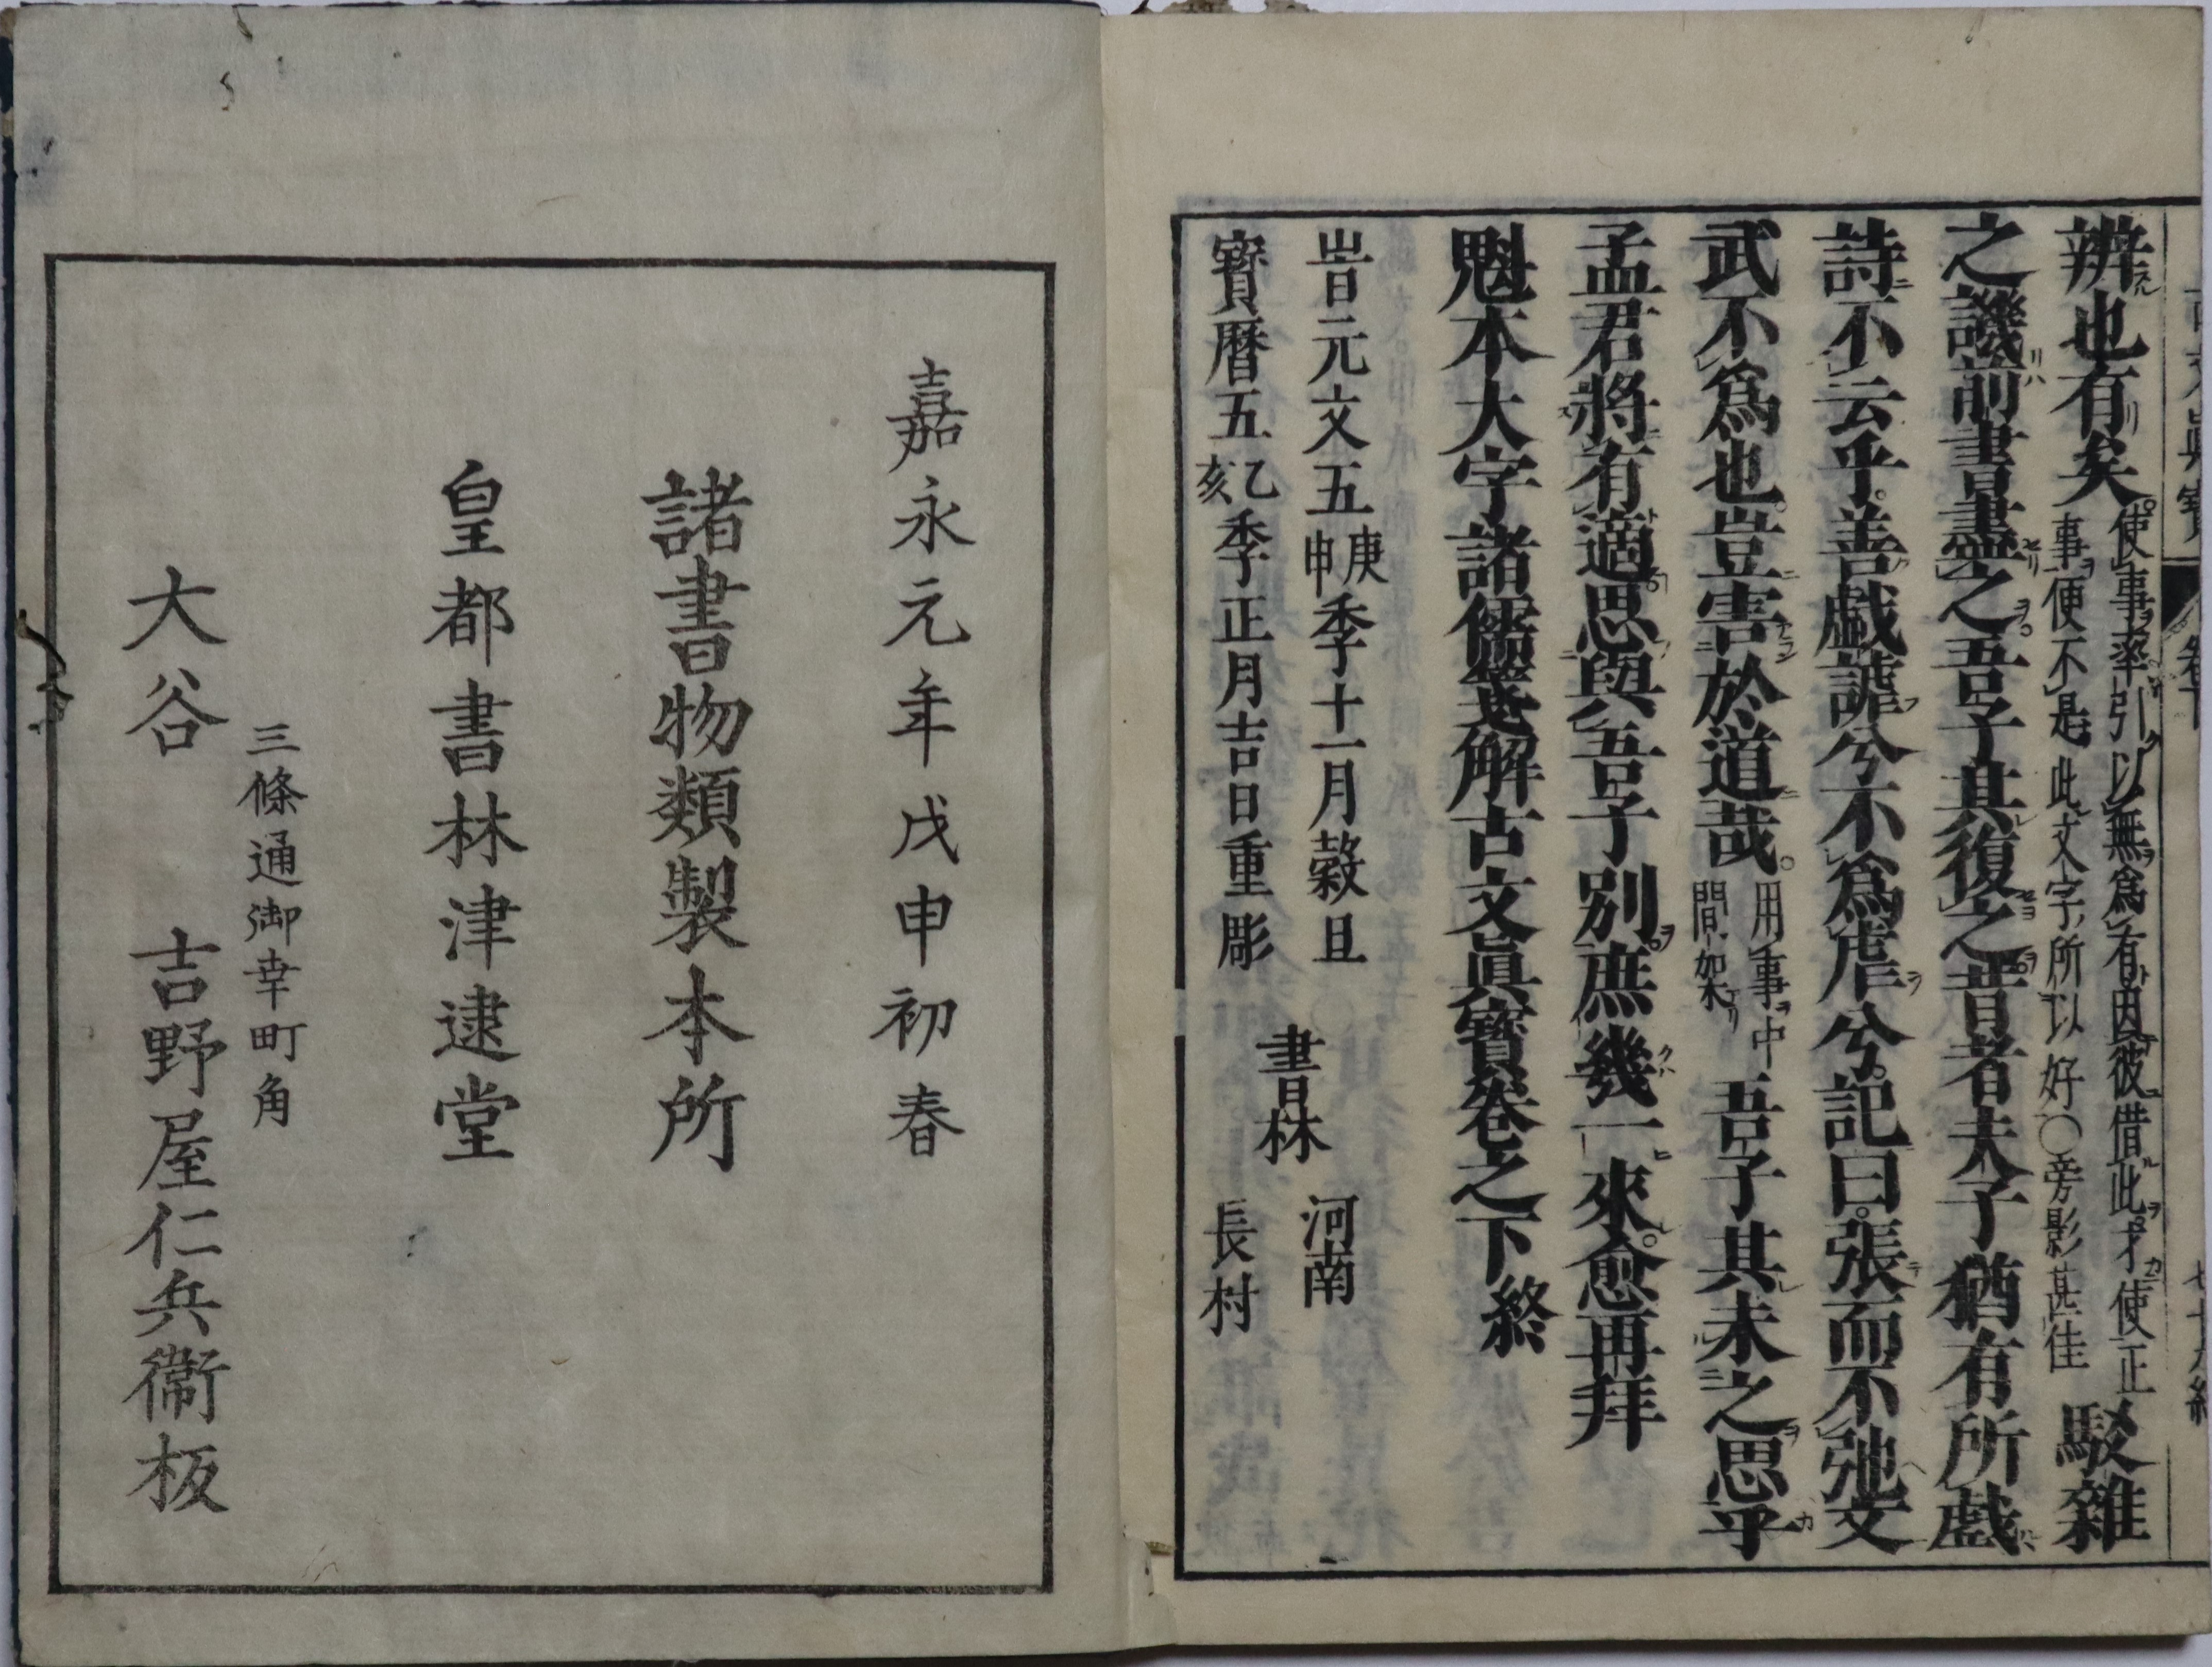 辨也有矣。使事率引以無爲有因彼借此才使正
事便不是此文字所以好〇旁影甚佳駁雜
之譏前書盡之。吾子其復之昔者夫子猶有所戲
詩不云乎。善戲謔兮不爲虐兮。記曰。張而不弛文
武不爲也。豈害於道哉。用事中
間如未吾子其未之思乎
孟君將有適思與吾子別。庶幾一來。愈再拜
魁本大字諸儒箋解古文眞寶卷之下終
旹元文五庚申季十一月穀旦
寶曆五乙亥季正月吉日重彫
書林
河南
長村
嘉永元年戊申初春
諸書物類製本所
皇都書林津逮堂
三條通御幸町角
大谷 吉野屋仁兵衞板